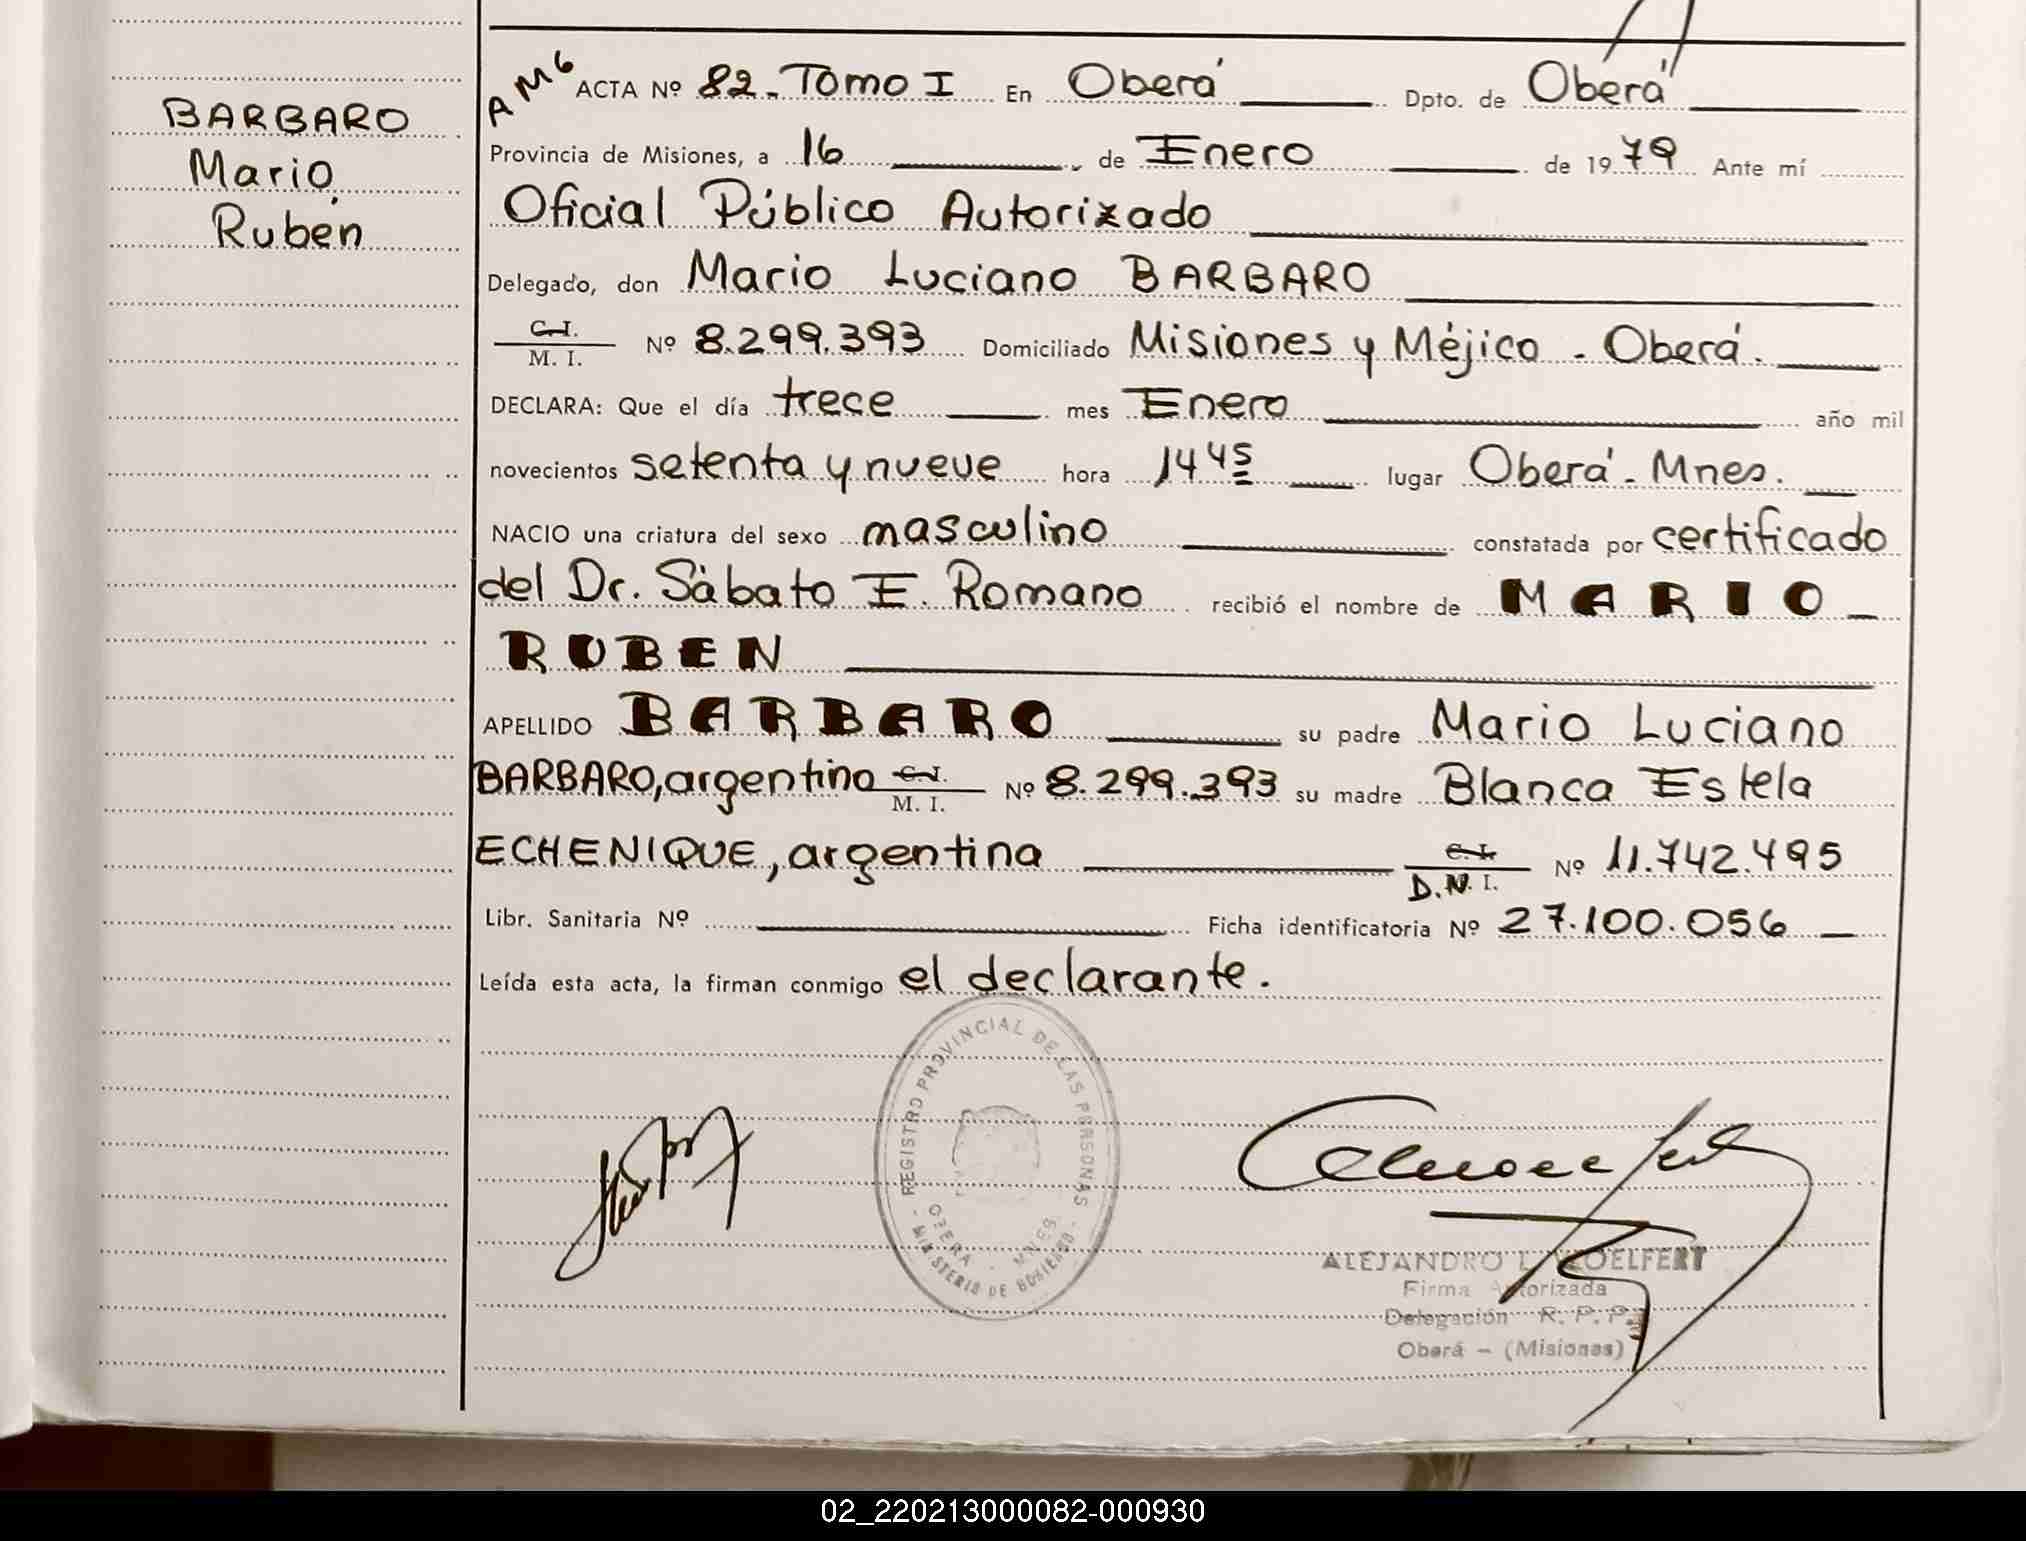 BARBARO
Mario
Rubén
AMG ACTA Nº 82 - Tomo I En Oberá Dpto. de Oberá
Provincia de Misiones, a 16 de Enero de 1979 Ante mí
Oficial Público Autorizado
Delegado, don Mario Luciano BARBARO
C.I.
M. I. Nº 8.299.393 Domiciliado Misiones y Méjico - Oberá.
DECLARA: Que el día trece mes Enero año mil
novecientos setenta y nueve hora 14 45 lugar Oberá - Mnes.
NACIO una criatura del sexo masculino constatada por certificado
del Dr. Sábato E. Romano recibió el nombre de MARIO
RUBEN
APELLIDO BARBARO su padre Mario Luciano
BARBARO, argentino C.I. M. I. Nº 8.299.393 su madre Blanca Estela
ECHENIQUE, argentina C.I. D.N.I. Nº 11.742.495
Libr. Sanitaria Nº Ficha identificatoria Nº 27.100.056
Leída esta acta, la firman conmigo el declarante.
REGISTRO PROVINCIAL DE LAS PERSONAS
OBERA - MNES.
- MINISTERIO DE GOBIERNO -
ALEJANDRO L. WOELFERT
Firma Autorizada
Delegación R. P. P.
Oberá - (Misiones)
02_220213000082-000930